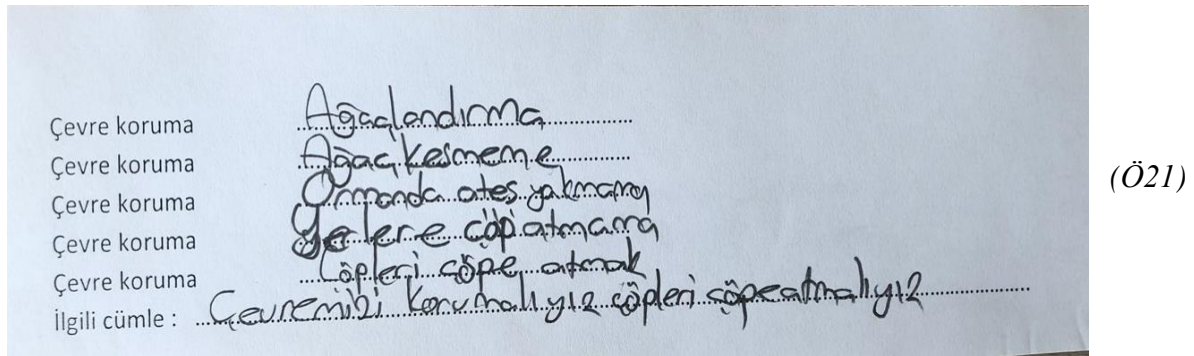 Çevre koruma Ağaçlandırma
Çevre koruma Ağaç kesmeme
Çevre koruma Ormanda ateş yakmama
Çevre koruma Yerlere çöp atmama
Çevre koruma Çöpleri çöpe atmak
İlgili cümle : Çevremizi korumalıyız çöpleri çöpe atmalıyız
(Ö21)